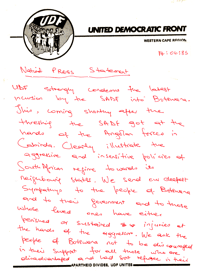 UDF
UNITED DEMOCRATIC FRONT
WESTERN CAPE REGION
14:06:85
Press Statement
UDF strongly condemns the latest
incursion by the SADF into Botswana.
This, coming shortly after the
thrashing the SADF got at the
hands of the Angolan forces in
Cabinda. Clearly illustrate the
aggressive and insensitive policies of
South African regime towards its
neighbouring States. We send our deepest
Sympathys to the people of Botswana
and to their government and to those
whose loved ones have either
perished or sustained injuries at
the hands of the aggressor. We ask the
people of Botswana not to be discouraged
in their support for all those who are
disadvantaged and had seek refuge in their
APARTHEID DIVIDES, UDF UNITES